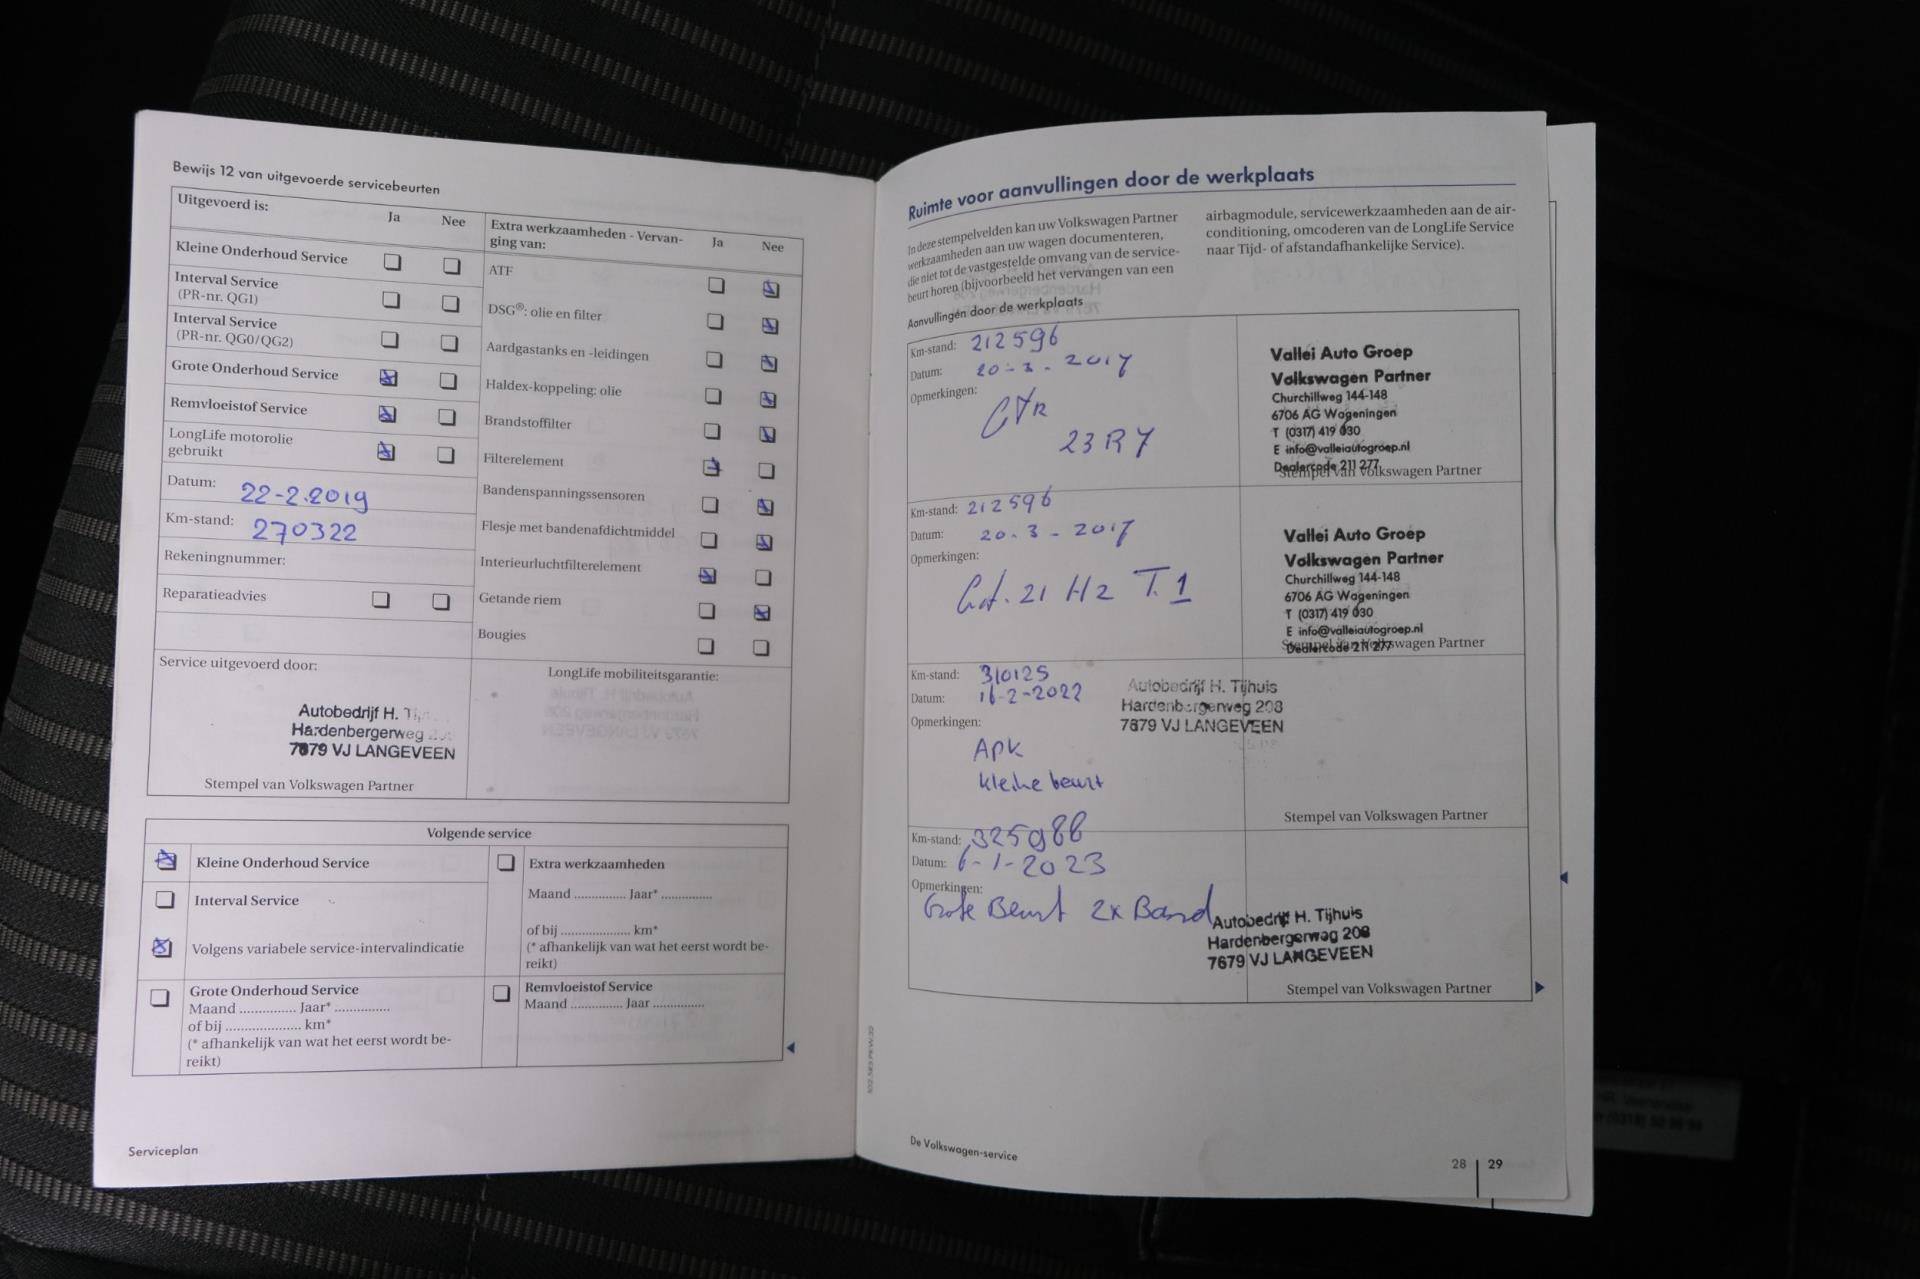 Bewijs 12 van uitgevoerde servicebeurten
Uitgevoerd is:
Ja
Nee
Kleine Onderhoud Service
Interval Service
(PR-nr. QG1)
Interval Service
(PR-nr. QG0/QG2)
Grote Onderhoud Service
Remvloeistof Service
LongLife motorolie
gebruikt
Datum: 22-2.2019
Km-stand: 270322
Rekeningnummer:
Reparatieadvies
Extra werkzaamheden - Vervan-
ging van:
Ja
Nee
ATF
DSG®: olie en filter
Aardgastanks en -leidingen
Haldex-koppeling: olie
Brandstoffilter
Filterelement
Bandenspanningssensoren
Flesje met bandenafdichtmiddel
Interieurluchtfilterelement
Getande riem
Bougies
Service uitgevoerd door:
Autobedrijf H.
Hardenbergerweg
7679 VJ LANGEVEEN
Stempel van Volkswagen Partner
LongLife mobiliteitsgarantie:
Volgende service
Kleine Onderhoud Service
Interval Service
Volgens variabele service-intervalindicatie
Grote Onderhoud Service
Maand ............... Jaar* ...............
of bij .................... km*
(* afhankelijk van wat het eerst wordt be-
reikt)
Extra werkzaamheden
Maand .............. Jaar* ..............
of bij .................... km*
(* afhankelijk van wat het eerst wordt be-
reikt)
Remvloeistof Service
Maand .............. Jaar ..............
Serviceplan
Ruimte voor aanvullingen door de werkplaats
In deze stempelvelden kan uw Volkswagen Partner
werkzaamheden aan uw wagen documenteren,
die niet tot de vastgestelde omvang van de service-
beurt horen (bijvoorbeeld het vervangen van een
airbagmodule, servicewerkzaamheden aan de air-
conditioning, omcoderen van de LongLife Service
naar Tijd- of afstandafhankelijke Service).
Aanvullingen door de werkplaats
Km-stand: 212596
Datum: 20-3-2017
Opmerkingen:
23R7
Vallei Auto Groep
Volkswagen Partner
Churchillweg 144-148
6706 AG Wageningen
T (0317) 419 030
E info@valleiautogroep.nl
Dealercode 211 277
Stempel van Volkswagen Partner
Km-stand: 212596
Datum: 20.3-2017
Opmerkingen:
21 H2 T.1
Vallei Auto Groep
Volkswagen Partner
Churchillweg 144-148
6706 AG Wageningen
T (0317) 419 030
E info@valleiautogroep.nl
Dealercode 211 277
Stempel van Volkswagen Partner
Km-stand: 310125
Datum: 16-2-2022
Opmerkingen:
Apk
kleine beurt
Autobedrijf H. Tijhuis
Hardenbergerweg 208
7679 VJ LANGEVEEN
Stempel van Volkswagen Partner
Km-stand: 325988
Datum: 6-1-2023
Opmerkingen:
Grote Beurt 2x Band
Autobedrijf H. Tijhuis
Hardenbergerweg 208
7679 VJ LANGEVEEN
Stempel van Volkswagen Partner
De Volkswagen-service
28 29